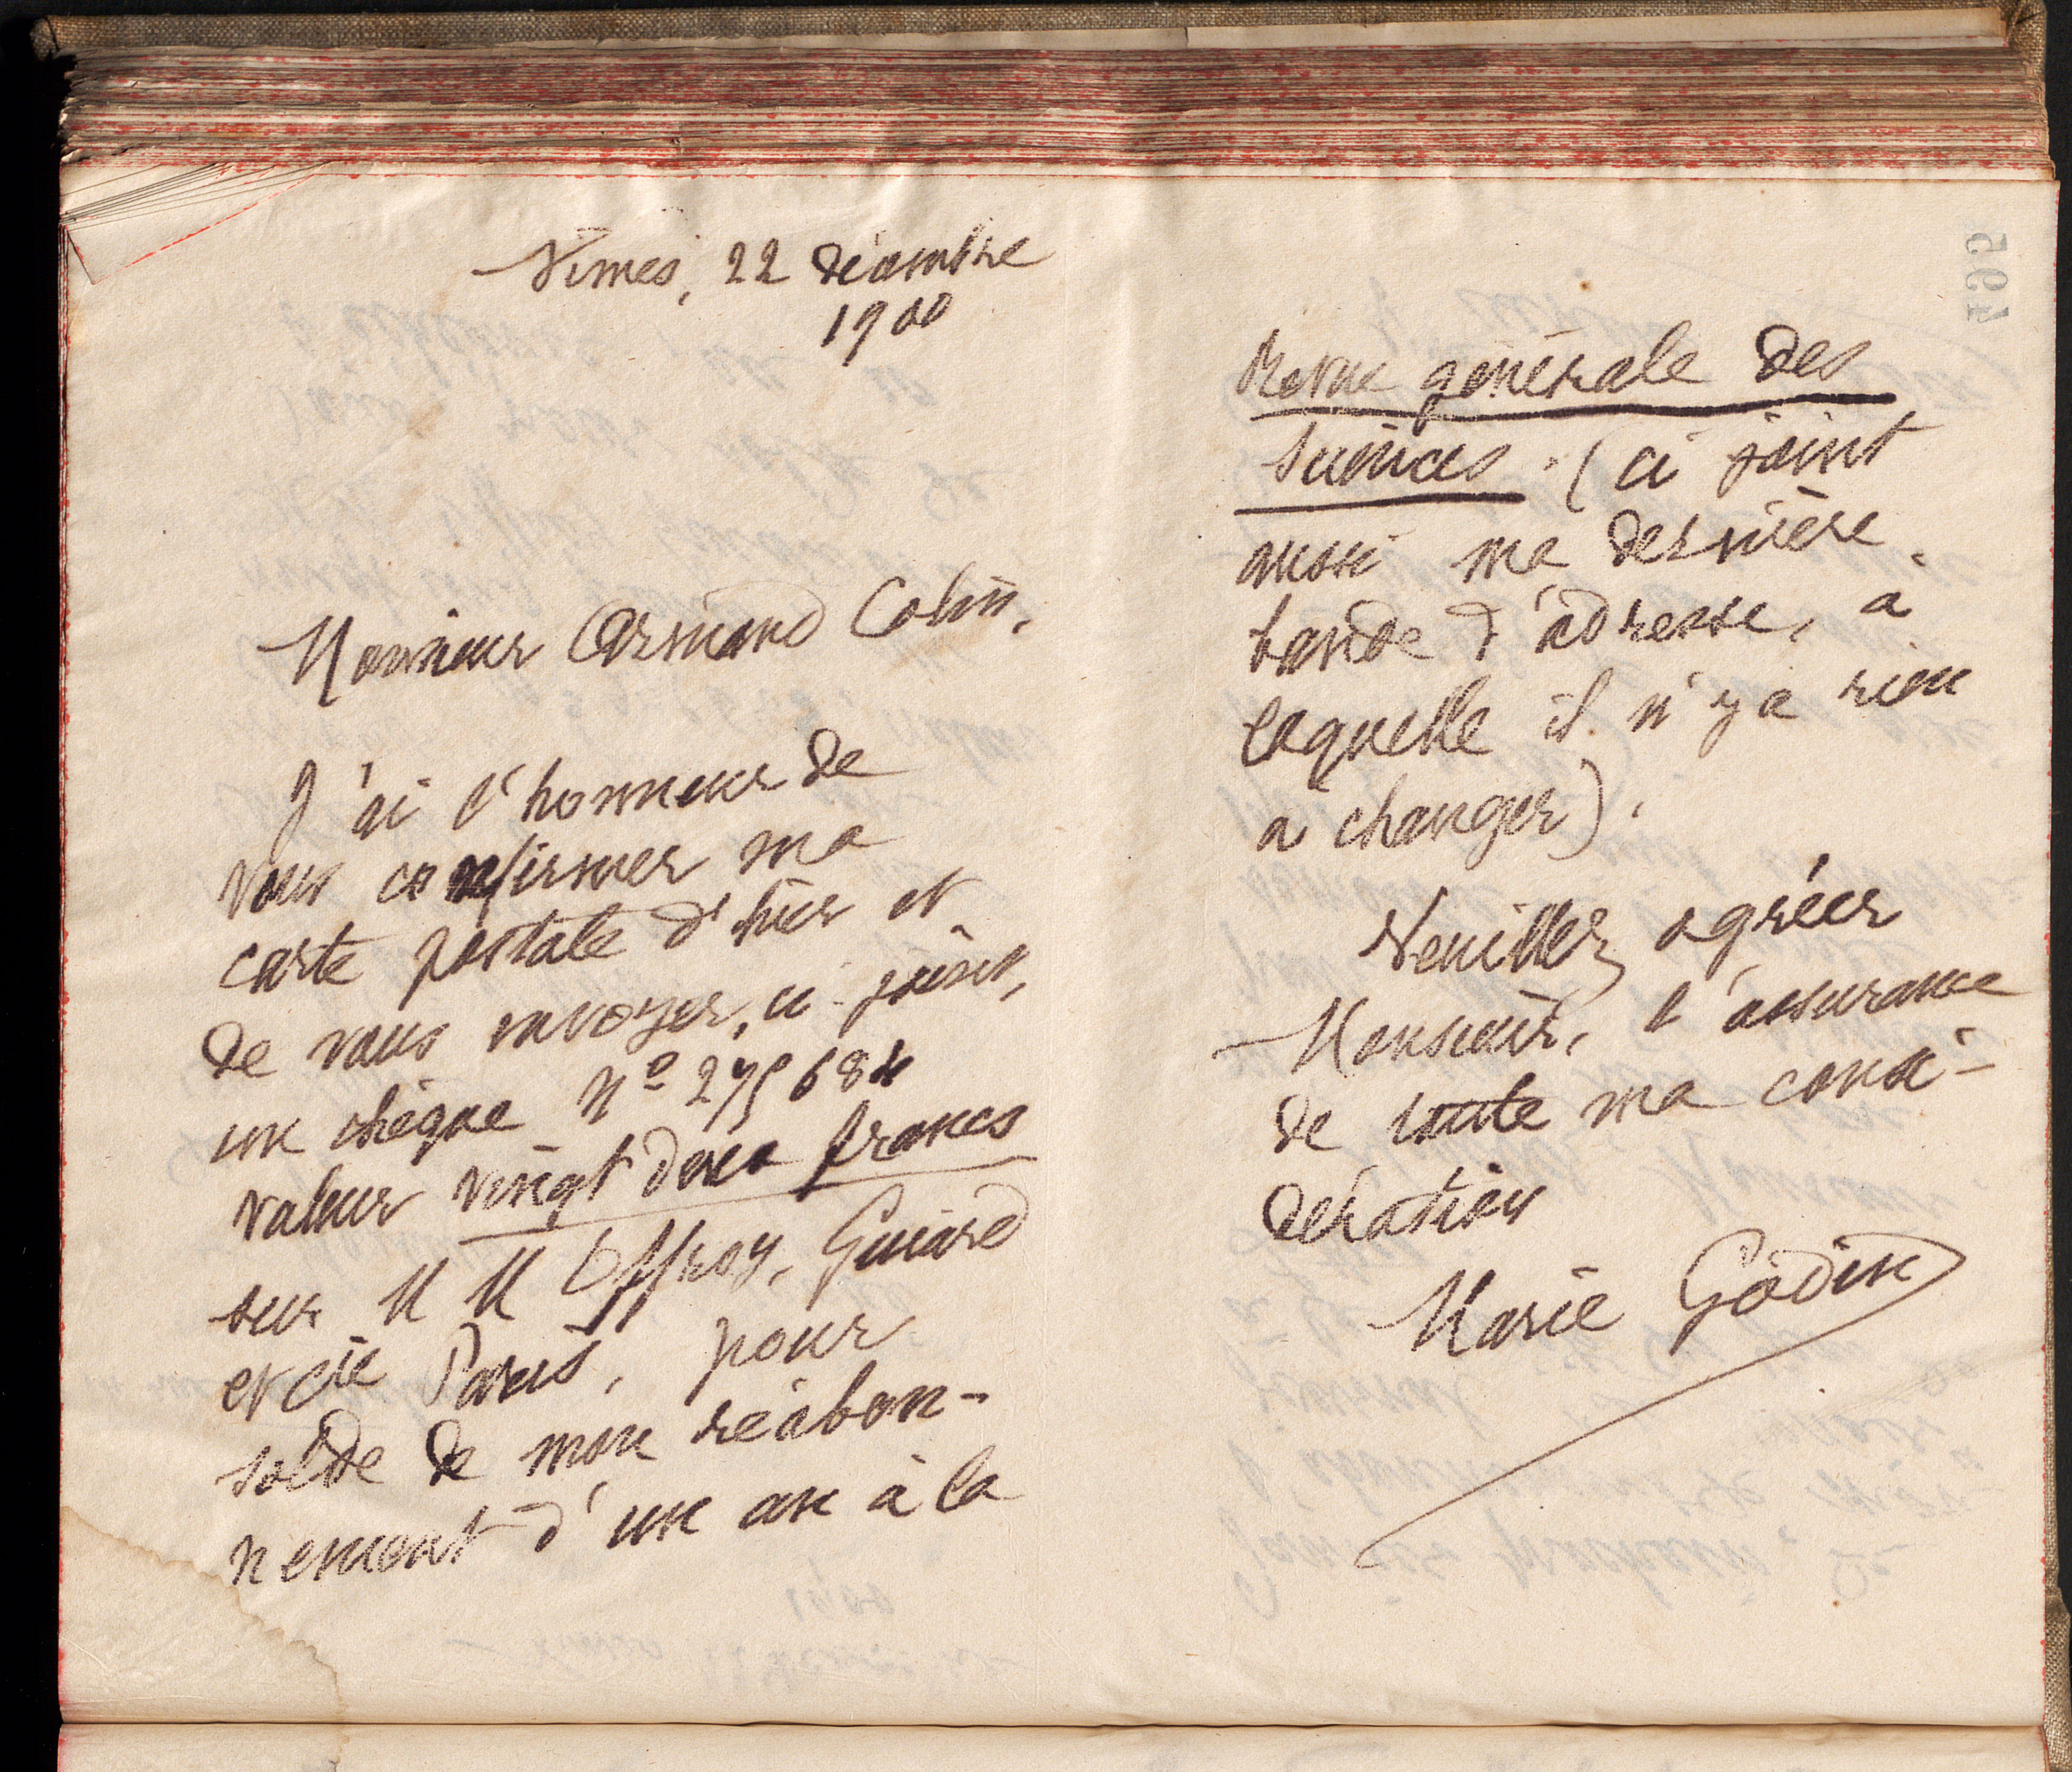 Nîmes, 22 décembre
1900
Monsieur Armand Colin,
J'ai l'honneur de
vous confirmer ma
carte postale d'hier et
de vous envoyer, ci-joint,
un chèque Nº 275684
valeur vingt deux francs
sur MM Offroy, Guiard
et Cie Paris, pour
solde de mon réabon-
nement d'un an à la
Revue générale des
Sciences. (ci joint
aussi ma dernière
bande d'adresse, à
laquelle il n'y a rien
à changer).
Veuillez agréer
Monsieur, l'assurance
de toute ma consi-
dération
Marie Godin
495